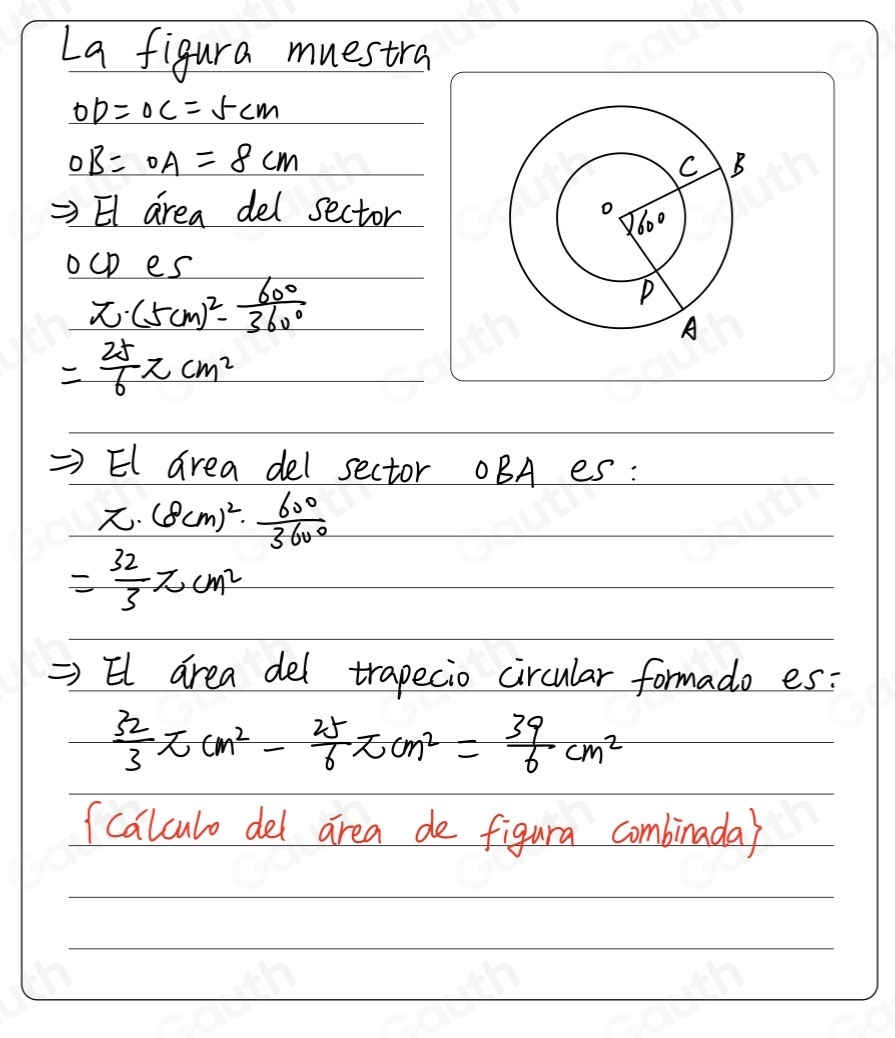 La figura muestra
OD = OC = 5 cm
OB = OA = 8 cm
⇒ El área del sector
OCD es
π·(5cm)² - 60°/360°
= 25/6 π cm²
C
B
O
60°
D
A
⇒ El área del sector OBA es:
π·(8cm)²· 60°/360°
= 32/3 π cm²
⇒ El área del trapecio circular formado es:
32/3 π cm² - 25/6 π cm² = 39/6 cm²
{Cálculo del área de figura combinada}
Gauth